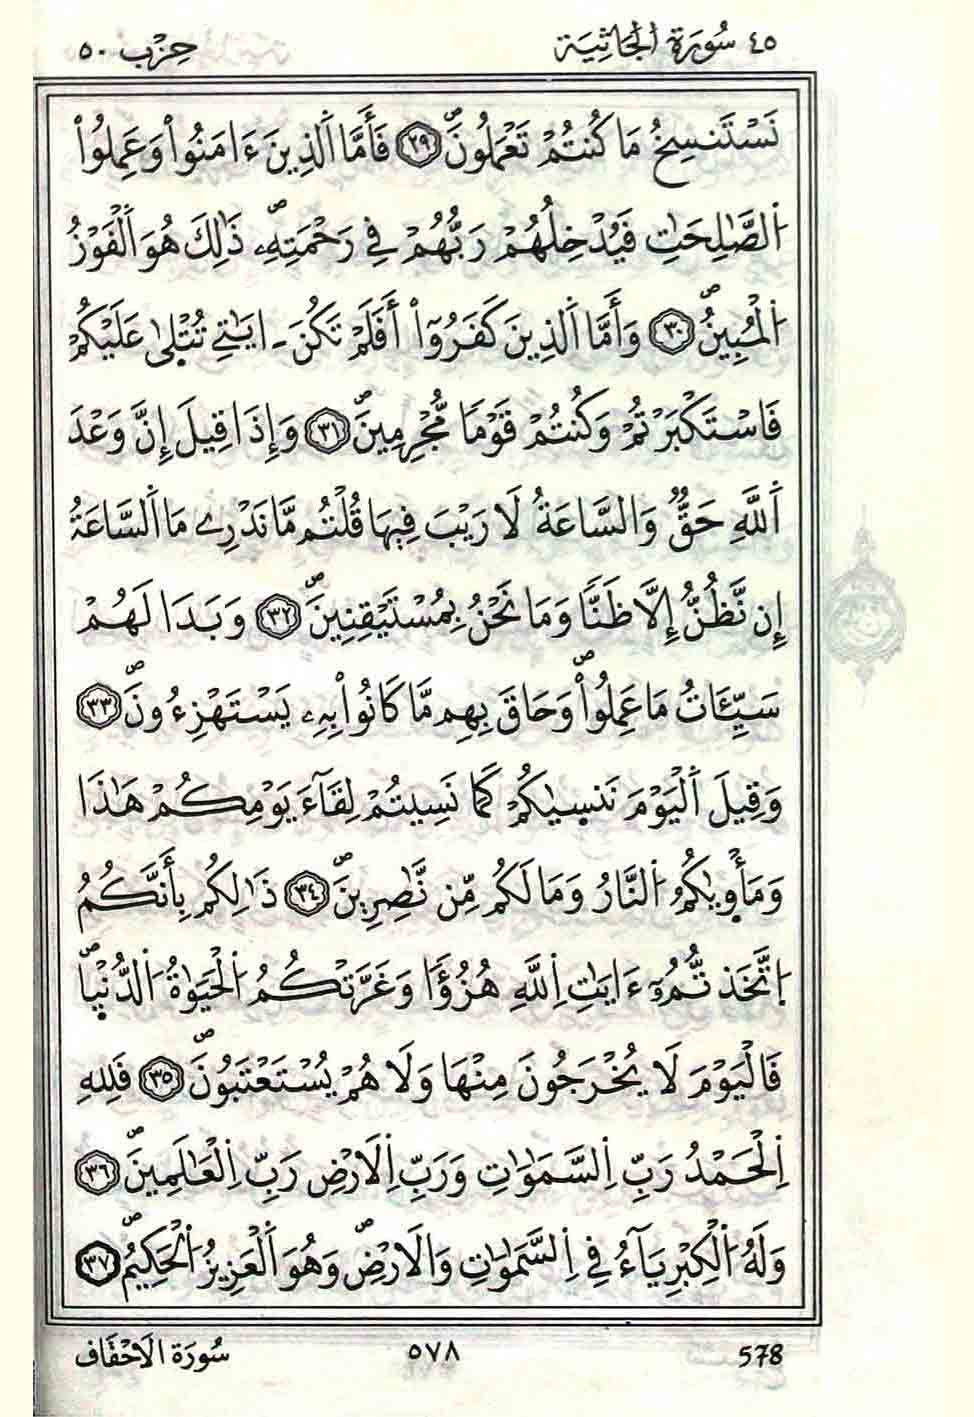 ٤٥ سُورَةُ الْجَاثِيَةِ حِزْب ٥٠
نَسْتَنسِخُ مَا كُنتُمْ تَعْمَلُونَۖ ٢٩ فَأَمَّا اَ۬لذِينَ ءَامَنُواْ وَعَمِلُواْ
اُ۬لصَّٰلِحَٰتِ فَيُدْخِلُهُمْ رَبُّهُمْ فِے رَحْمَتِهِۦۖ ذَٰلِكَ هُوَ اَ۬لْفَوْزُ
اُ۬لْمُبِينُۖ ٣٠ وَأَمَّا اَ۬لذِينَ كَفَرُوٓاْ أَفَلَمْ تَكُنَ ـ ايَٰتِے تُتْل۪ىٰ عَلَيْكُمْ
فَاسْتَكْبَرْتُمْ وَكُنتُمْ قَوْماٗ مُّجْرِمِينَۖ ٣١ وَإِذَا قِيلَ إِنَّ وَعْدَ
اَ۬للَّهِ حَقّٞ وَالسَّاعَةُ لَا رَيْبَ فِيهَا قُلْتُم مَّا نَدْرِے مَا اَ۬لسَّاعَةُ
إِن نَّظُنُّ إِلَّا ظَنّاٗ وَمَا نَحْنُ بِمُسْتَيْقِنِينَۖ ٣٢ وَبَدَا لَهُمْ
سَيِّـَٔاتُ مَا عَمِلُواْۖ وَحَاقَ بِهِم مَّا كَانُواْ بِهِۦ يَسْتَهْزِءُونَۖ ٣٣
وَقِيلَ اَ۬لْيَوْمَ نَنس۪يٰكُمْ كَمَا نَسِيتُمْ لِقَآءَ يَوْمِكُمْ هَٰذَا
وَمَأْو۪يٰكُمُ اُ۬لنَّارُ وَمَا لَكُم مِّن نَّٰصِرِينَۖ ٣٤ ذَٰلِكُم بِأَنَّكُمُ
اُ۪تَّخَذتُّمُۥٓ ءَايَٰتِ اِ۬للَّهِ هُزُؤاٗ وَغَرَّتْكُمُ اُ۬لْحَيَوٰةُ اُ۬لدُّنْي۪اۖ
فَالْيَوْمَ لَا يُخْرَجُونَ مِنْهَا وَلَا هُمْ يُسْتَعْتَبُونَۖ ٣٥ فَلِلهِ
اِ۬لْحَمْدُ رَبِّ اِ۬لسَّمَٰوَٰتِ وَرَبِّ اِ۬لَارْضِ رَبِّ اِ۬لْعَٰلَمِينَۖ ٣٦
وَلَهُ اُ۬لْكِبْرِيَآءُ فِے اِ۬لسَّمَٰوَٰتِ وَالَارْضِۖ وَهُوَ اَ۬لْعَزِيزُ اُ۬لْحَكِيمُۖ ٣٧
سُورَةُ الَاحْقَاف ٥٧٨ 578